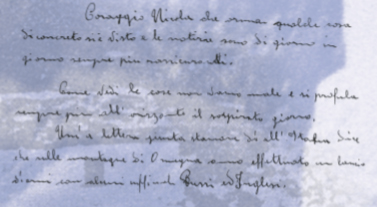 Coraggio Nicola che ormai qualche cosa
di concreto si è visto e le notizie sono di giorno in
giorno sempre più rassicuranti.
Come vedi le cose non vanno male e si profila
sempre più all'orizzonte il sospirato giorno.
Una lettera giunta stamani dice
che nelle montagne di Omegna sono effettuato un lancio
d'armi con alcuni ufficiali Russi ed Inglesi.